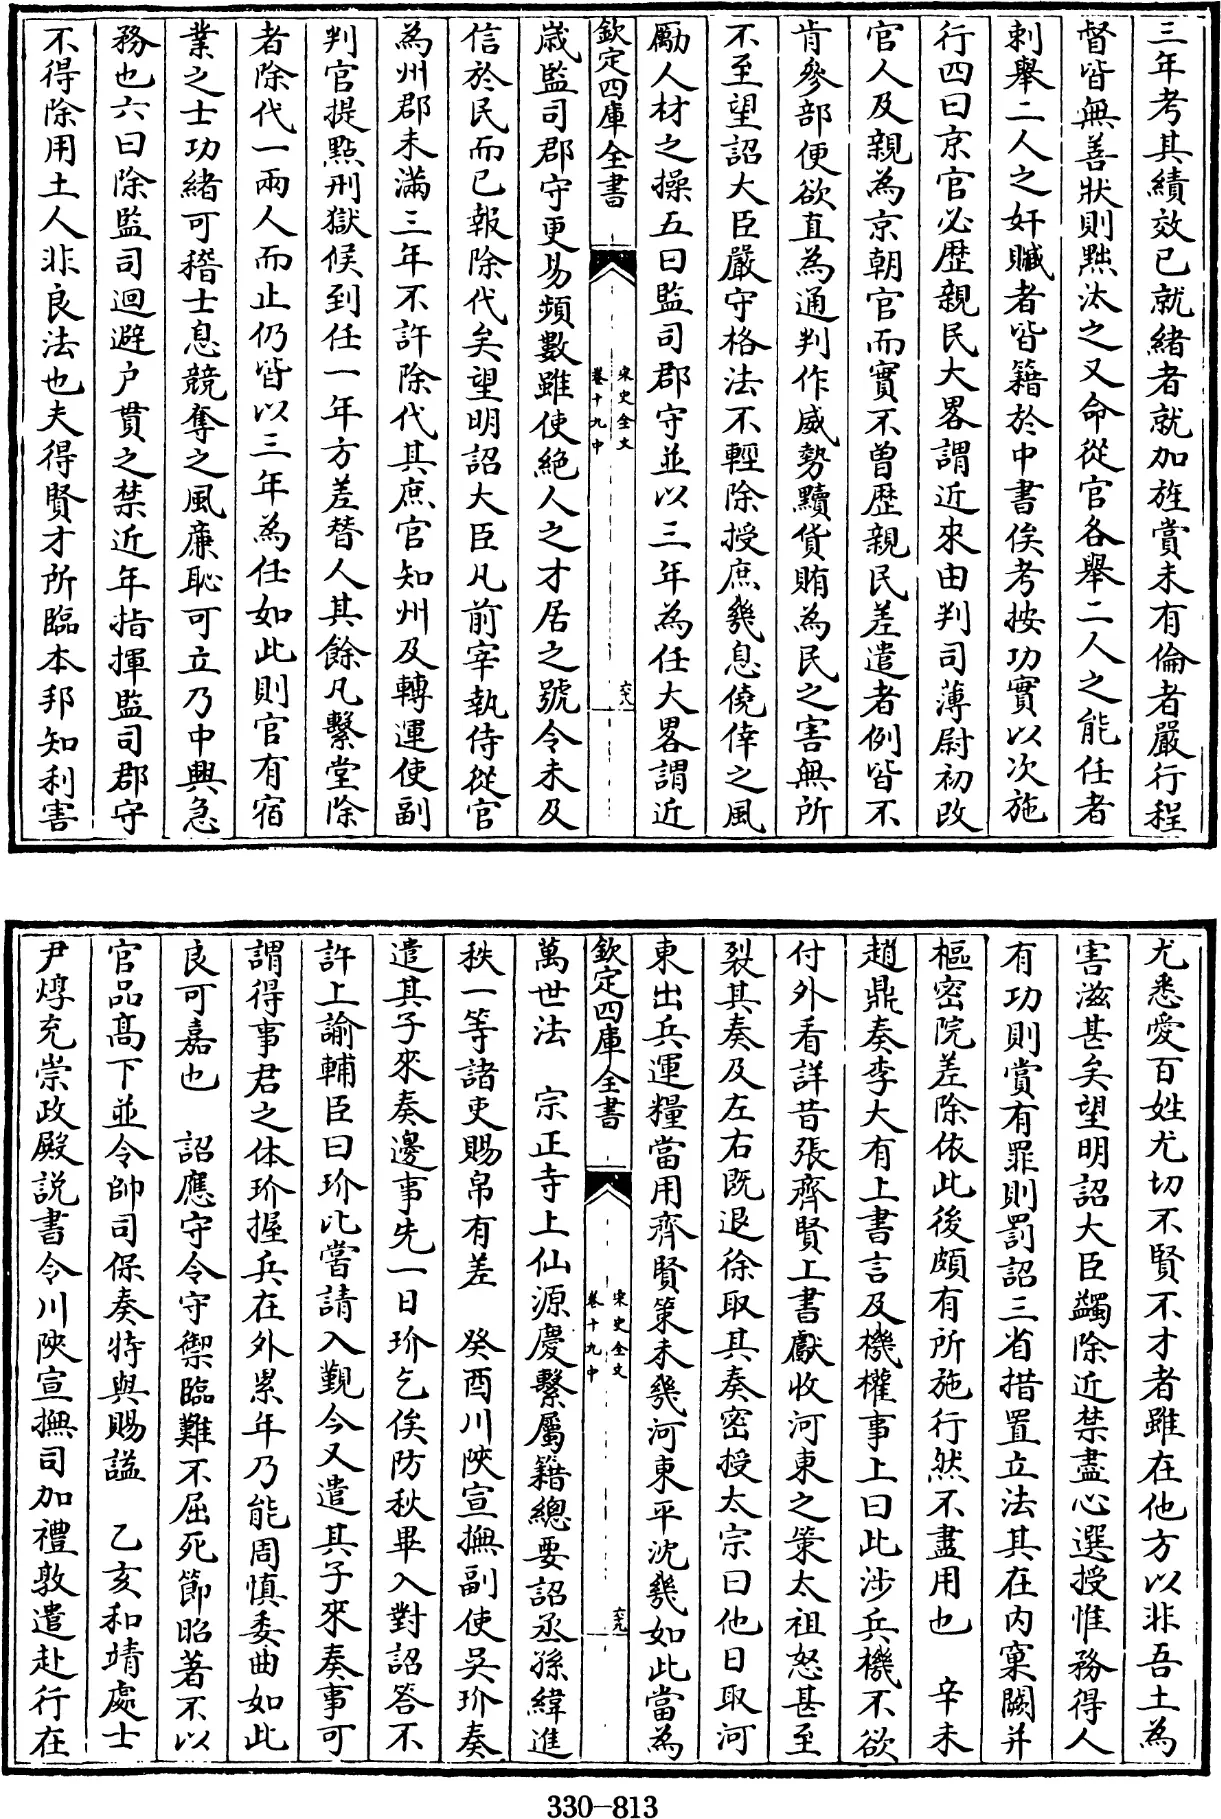 三年考其績效已就緒者就加旌賞未有倫者嚴行程
督皆無善狀則黜汰之又命從官各舉二人之能任者
刺舉二人之奸贓者皆籍於中書俟考按功實以次施
行四曰京官必歴親民大畧謂近來由判司薄尉初改
官人及親為京朝官而實不曾歴親民差遣者例皆不
肯參部便欲直為通判作威勢黷貨賄為民之害無所
不至望詔大臣嚴守格法不輕除授庶幾息僥倖之風
勵人材之操五曰監司郡守並以三年為任大畧謂近
欽定四庫全書
宋史全文
卷十九中
六八
歲監司郡守更易頻數雖使絶人之才居之號令未及
信於民而已報除代矣望明詔大臣凡前宰執侍從官
為州郡未滿三年不許除代其庶官知州及轉運使副
判官提點刑獄候到任一年方差替人其餘凡繫堂除
者除代一兩人而止仍皆以三年為任如此則官有宿
業之士功緒可稽士息競奪之風廉恥可立乃中興急
務也六曰除監司迴避户貫之禁近年指揮監司郡守
不得除用土人非良法也夫得賢才所臨本邦知利害
尤悉愛百姓尤切不賢不才者雖在他方以非吾土為
害滋甚矣望明詔大臣蠲除近禁盡心選授惟務得人
有功則賞有罪則罰詔三省措置立法其在内窠闕并
樞密院差除依此後頗有所施行然不盡用也　辛未
趙鼎奏李大有上書言及機權事上曰此涉兵機不欲
付外看詳昔張齊賢上書獻收河東之策太祖怒甚至
裂其奏及左右既退徐取其奏密授太宗曰他日取河
東出兵運糧當用齊賢策未幾河東平沈幾如此當為
欽定四庫全書
宋史全文
卷十九中
六九
萬世法　宗正寺上仙源慶繫屬籍總要詔丞孫緯進
秩一等諸吏賜帛有差　癸酉川陜宣撫副使吴玠奏
遣其子來奏邊事先一日玠乞俟防秋畢入對詔答不
許上諭輔臣曰玠比嘗請入覲今又遣其子來奏事可
謂得事君之体玠握兵在外累年乃能周慎委曲如此
良可嘉也　詔應守令守禦臨難不屈死節昭著不以
官品髙下並令帥司保奏特與賜諡　乙亥和靖處士
尹焞充崇政殿説書令川陜宣撫司加禮敦遣赴行在
330-813